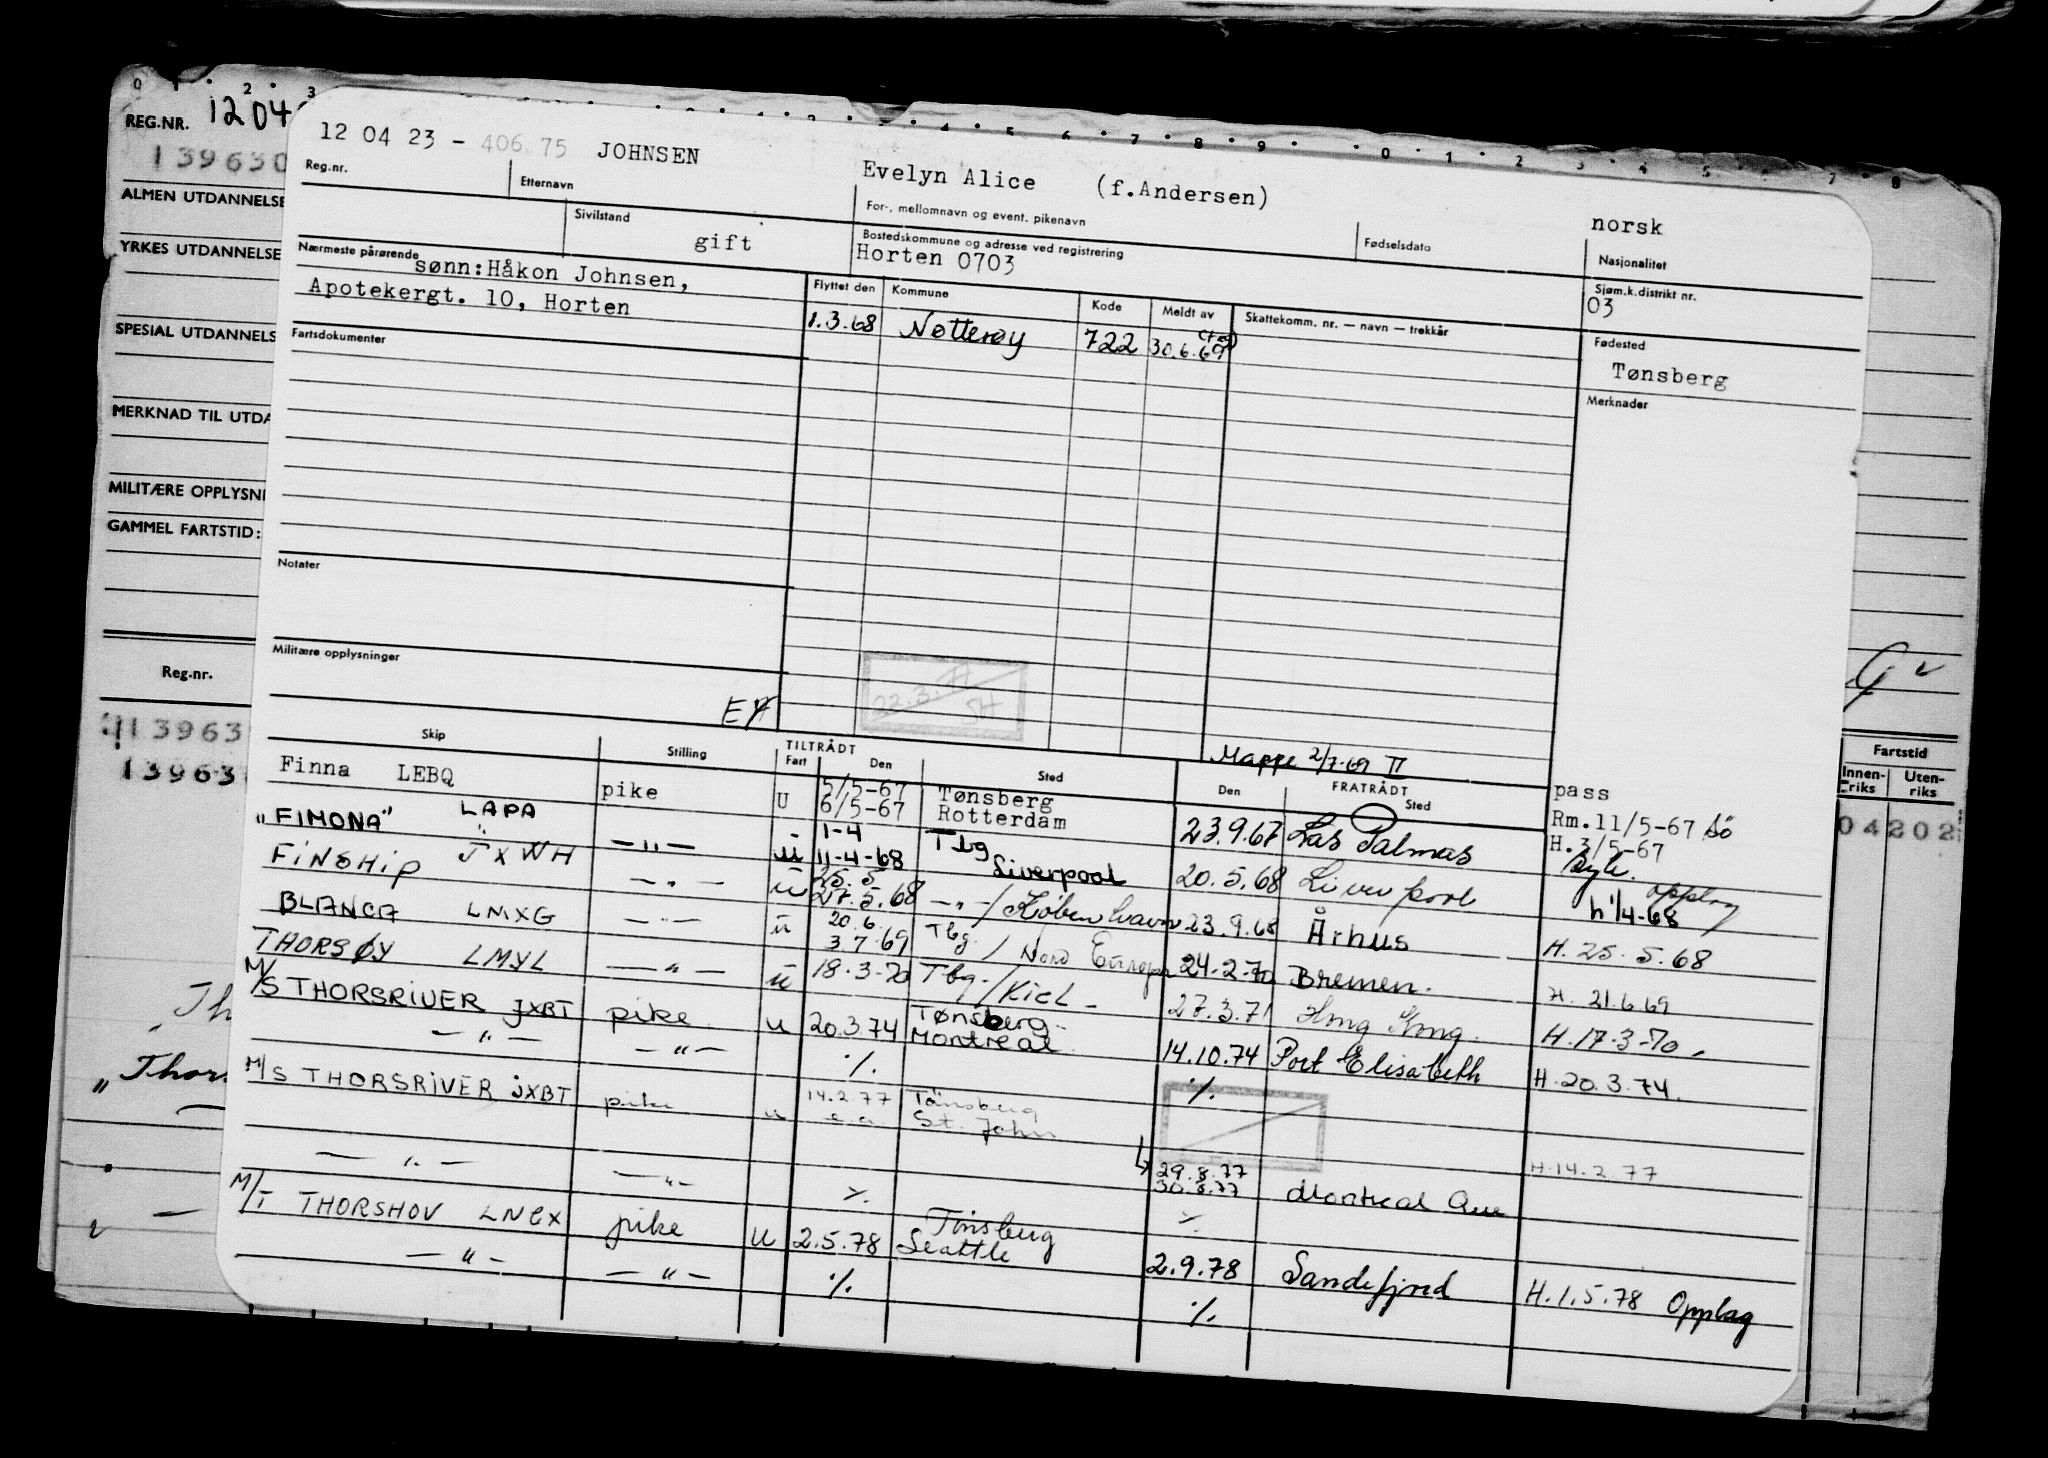 0 1 2 3 4 5 6 7 8 9 0 1 2 3 4 5 7 8
REG.NR. 1204
139630
ALMEN UTDANNELSE
YRKES UTDANNELSE
SPESIAL UTDANNELS
MERKNAD TIL UTDA
MILITÆRE OPPLYSNI
GAMMEL FARTSTID:
Reg.nr.
13963
13963
Th
"Thors
12 04 23 - 406.75 JOHNSEN Evelyn Alice (f.Andersen) norsk
Reg.nr. Etternavn For-, mellomnavn og event. pikenavn Fødselsdato Nasjonalitet
Sivilstand gift
Bostedskommune og adresse ved registrering Horten 0703
Sjøm.k.distrikt nr. 03
Nærmeste pårørende sønn:Håkon Johnsen,
Apotekergt. 10, Horten
Flyttet den Kommune Kode Meldt av Skattekomm. nr. — navn — trekkår
1.3.68 Nøtterøy 722 30.6.69
Fødested
Tønsberg
Fartsdokumenter
Merknader
Notater
Militære opplysninger
22.3.71
SH
Mappe 2/7-69 II
Skip Stilling TILTRÅDT Fart Den Sted FRATRÅDT Den Sted
Finna LEBQ pike U 5/5-67 Tønsberg 23.9.67 Las Palmas pass
6/5-67 Rotterdam Rm.11/5-67 Sö
H.3/5-67
"FIMONA" LAPA —"— u 1-4 Tbg 20.5.68 Liverpool
11-4-68 Liverpool h 1/4-68 opplag
FINSHIP JXWH —"— u 25.5 —"—/København 23.9.68 Århus H. 25.5.68
27.5.68
BLANCA LMXG —"— u 20.6. Tbg./Nord Europa 24-2-70 Bremen. H. 21.6.69
3.7.69
THORSØY LMYL —"— u 18.3-70 Tbg./Kiel 27.3.71 Hong Kong. H.17-3-70
M/S THORSRIVER JXBT pike u 20.3.74 Tønsberg 14.10.74 Port Elisabeth H.20.3.74.
Montreal
—"— —"— ./. ./.
M/S THORSRIVER JXBT pike u 14.2.77 Tönsberg H.14.2.77
St. John
29.8.77
30.8.77 Montreal Que
—"— —"— ./. ./.
M/T THORSHOV LNCX pike u 2.5.78 Tönsberg 2.9.78 Sandefjord H.1.5.78 Opplag
Seattle
—"— —"— ./. ./.
Fartstid
Innen-riks Uten-riks
04 202